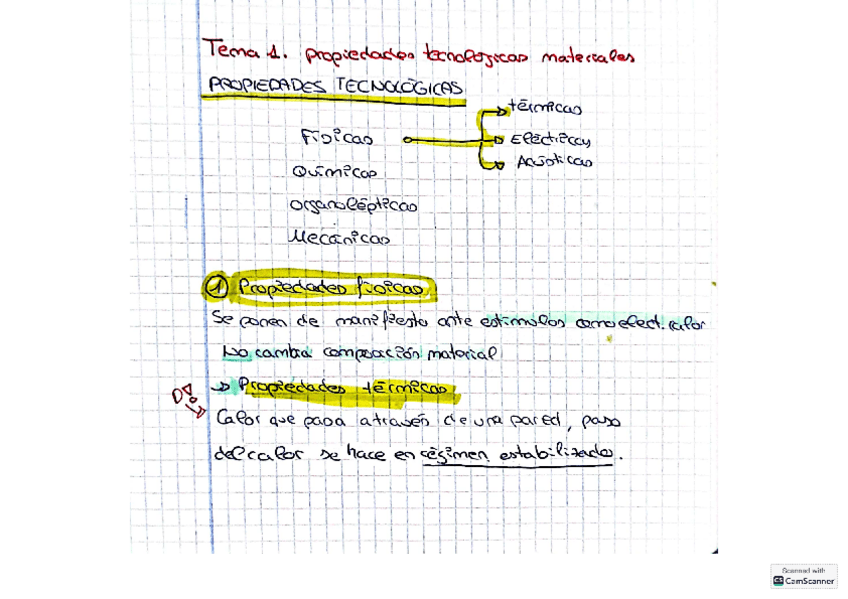 Tema 1. propiedades tecnologicas materiales
PROPIEDADES TECNOLÓGICAS
térmicas
Físicas
Eléctricas
Acústicas
Químicas
organolépticas
Mecánicas
1 Propiedades físicas
Se ponen de manifiesto ante estímulos como elect. calor
No cambia composición material
→ Propiedades térmicas
Calor que pasa a través de una pared, paso
del calor se hace en régimen estabilizado.
Scanned with
CS CamScanner